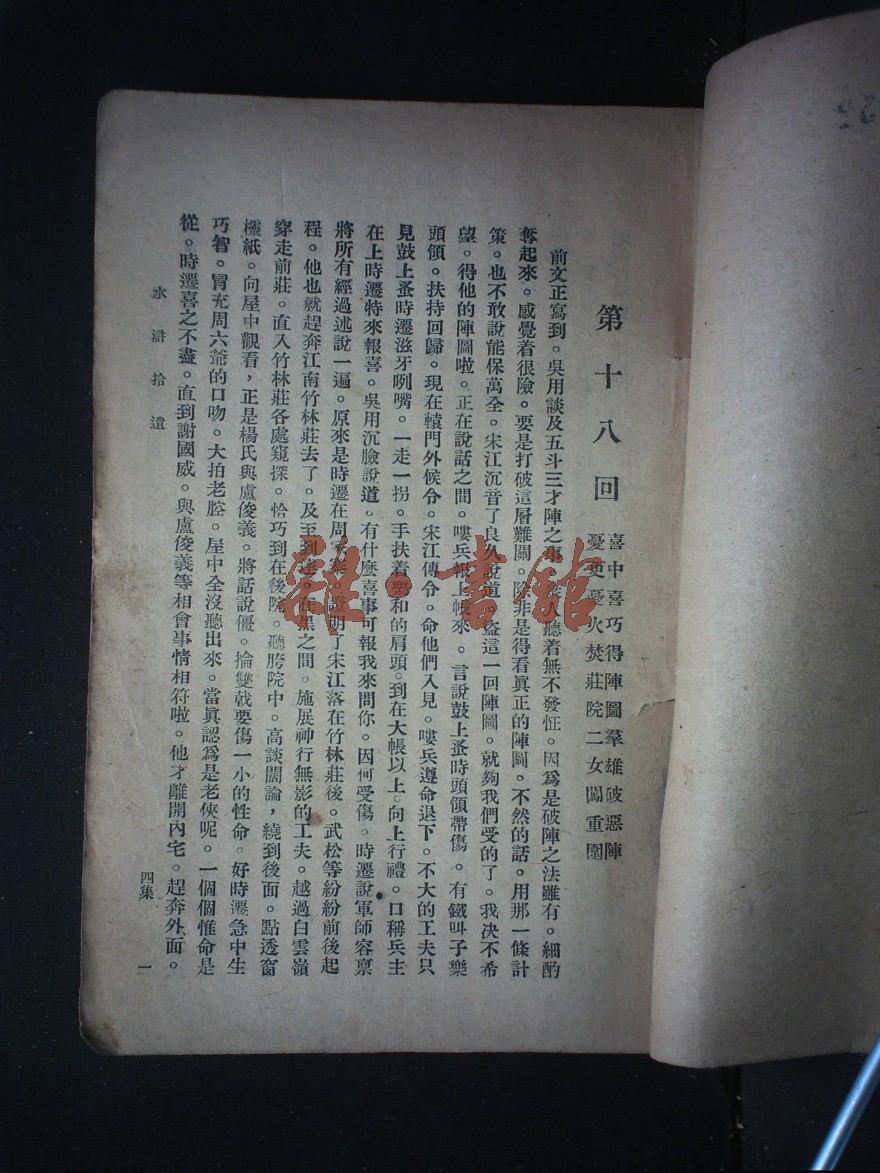 第十八回
喜中喜巧得陣圖羣雄破惡陣
憂更憂火焚莊院二女闖重圍
前文正寫到。吳用談及五斗三才陣之事。衆人聽着無不發怔。因爲是破陣之法雖有。細酌
奪起來。感覺着很險。要是打破這層難關。除非是得看眞正的陣圖。不然的話。用那一條計
策。也不敢說能保萬全。宋江沉音了良久說道。盜這一回陣圖。就夠我們受的了。我決不希
望。得他的陣圖啦。正在說話之間。嘍兵報上帳來。言說鼓上蚤時頭領帶傷。有鐵叫子樂
頭領。扶持回歸。現在轅門外候令。宋江傳令。命他們入見。嘍兵遵命退下。不大的工夫只
見鼓上蚤時遷滋牙咧嘴。一走一拐。手扶着樂和的肩頭。到在大帳以上。向上行禮。口稱兵主
在上時遷特來報喜。吳用沉臉說道。有什麼喜事可報我來問你。因何受傷。時遷說軍師容禀
將所有經過述說一遍。原來是時遷在周家莊。證明了宋江落在竹林莊後。武松等紛紛前後起
程。他也就趕奔江南竹林莊去了。及至到達。在黑之間。施展神行無影的工夫。越過白雲嶺
穿走前莊。直入竹林莊各處窺探。恰巧到在後院。聽胯院中。高談闊論，繞到後面。點透窗
櫺紙。向屋中觀看，正是楊氏與盧俊義。將話說僵。掄雙戟要傷一小的性命。好時遷急中生
巧智。冒充周六爺的口吻。大拍老腔。屋中全沒聽出來。當眞認爲是老俠呢。一個個惟命是
從。時遷喜之不盡。直到謝國威。與盧俊義等相會事情相符啦。他才離開內宅。趕奔外面。
水滸拾遺
四集
一
雜·書館